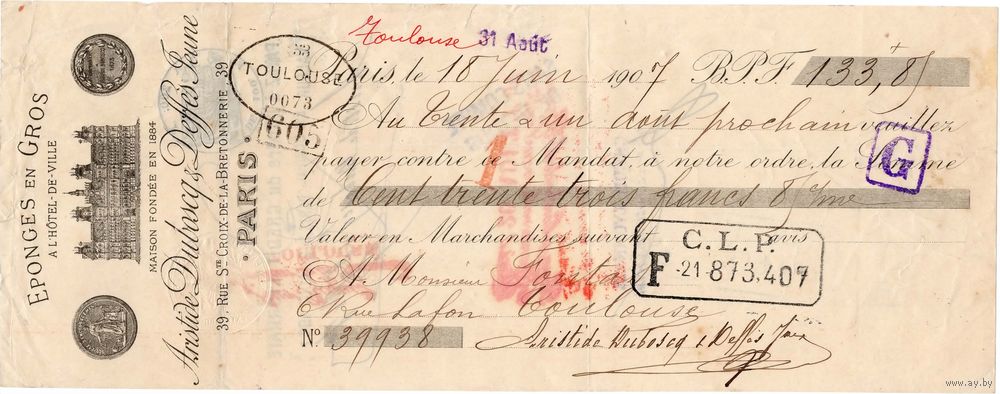 EPONGES EN GROS
A L'HÔTEL-DE-VILLE
MAISON FONDÉE EN 1884
Aristide Duboscq & Deffès Jeune
39, RUE STE CROIX-DE-LA-BRETONNERIE 39
PARIS.
Toulouse 31 Août
33
TOULOUSE
0073
1605
Paris, le 18 Juin 1907 B.P.F. 133,85
Au Trente & un août prochain veuillez
payer contre ce Mandat, à notre ordre, la Somme
G
de Cent trente trois francs 85/me
Valeur en Marchandises suivant avis
C.L.P.
F -21-873,407
A Monsieur
6 Rue Lafon Toulouse
No 39938 Aristide Duboscq & Deffès Jeune
www.ay.by